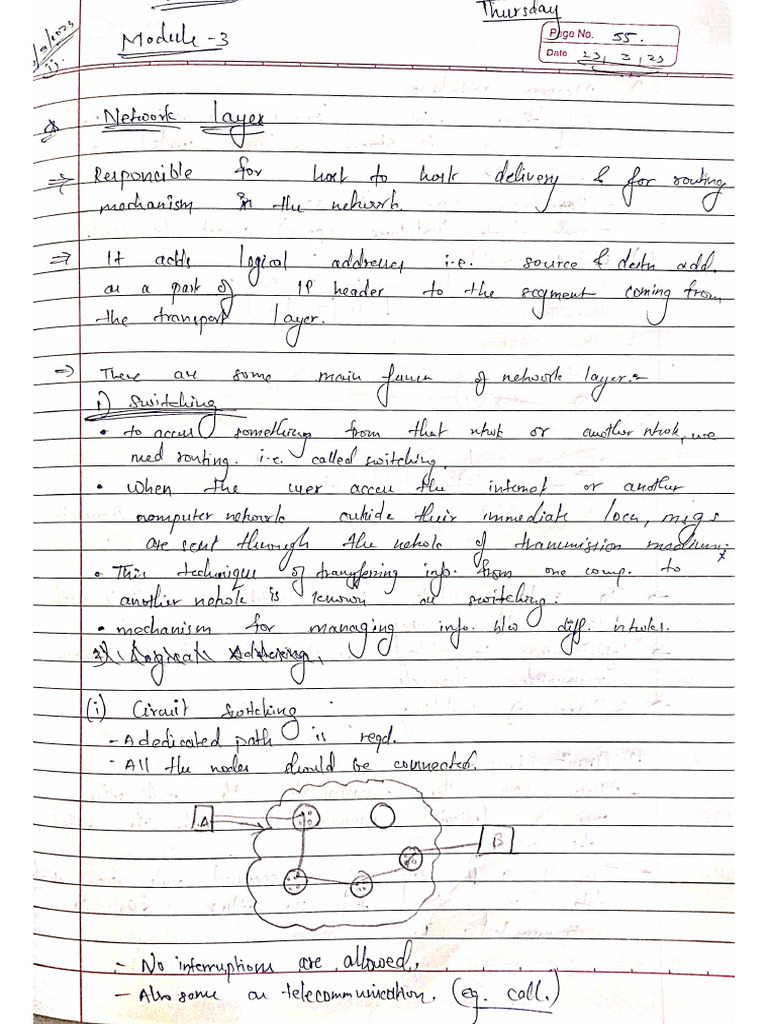 Thursday
Page No. 55.
Date 23, 3, 23
Module - 3
Network layer
⇒ Responcible for host to host delivery & for routing
mechanism in the network.
⇒ It adds logical addresses i.e. source & destn add.
as a part of IP header to the segment coming from
the transport layer.
⇒ There are some main of network layer:-
1) Switching
• to access something from that ntwk or another ntwk, we
need routing. i.e. called switching.
• When the user access the internet or another
computer network outside their immediate locn, msgs
are sent through the netwk of transmission medium;
• This technique of transferring info. from one comp. to
another netwk is known as switching.
• mechanism for managing info. b/w diff. ntwks.
2) Logical Addressing,
(i) Circuit switching
- A dedicated path is reqd.
- All the nodes should be connected.
A
B
- No interruptions are allowed.
- Also same as telecommunication. (eg. call.)